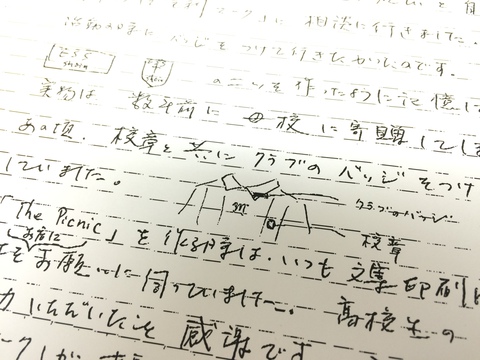 マーク」に相談に行きました。
活動の時にバッジをつけて行きたかったのです。
ESS
中
の二つを作ったように記憶し
実物は数年前に母校に寄贈してしま
あの頃、校章と共にクラブのバッジをつけ
していました。
クラブのバッジ
校章
「The Picnic」を作る時は、いつも文章印刷
お願いに伺っていました。高校生の
力いただいたことを感謝です